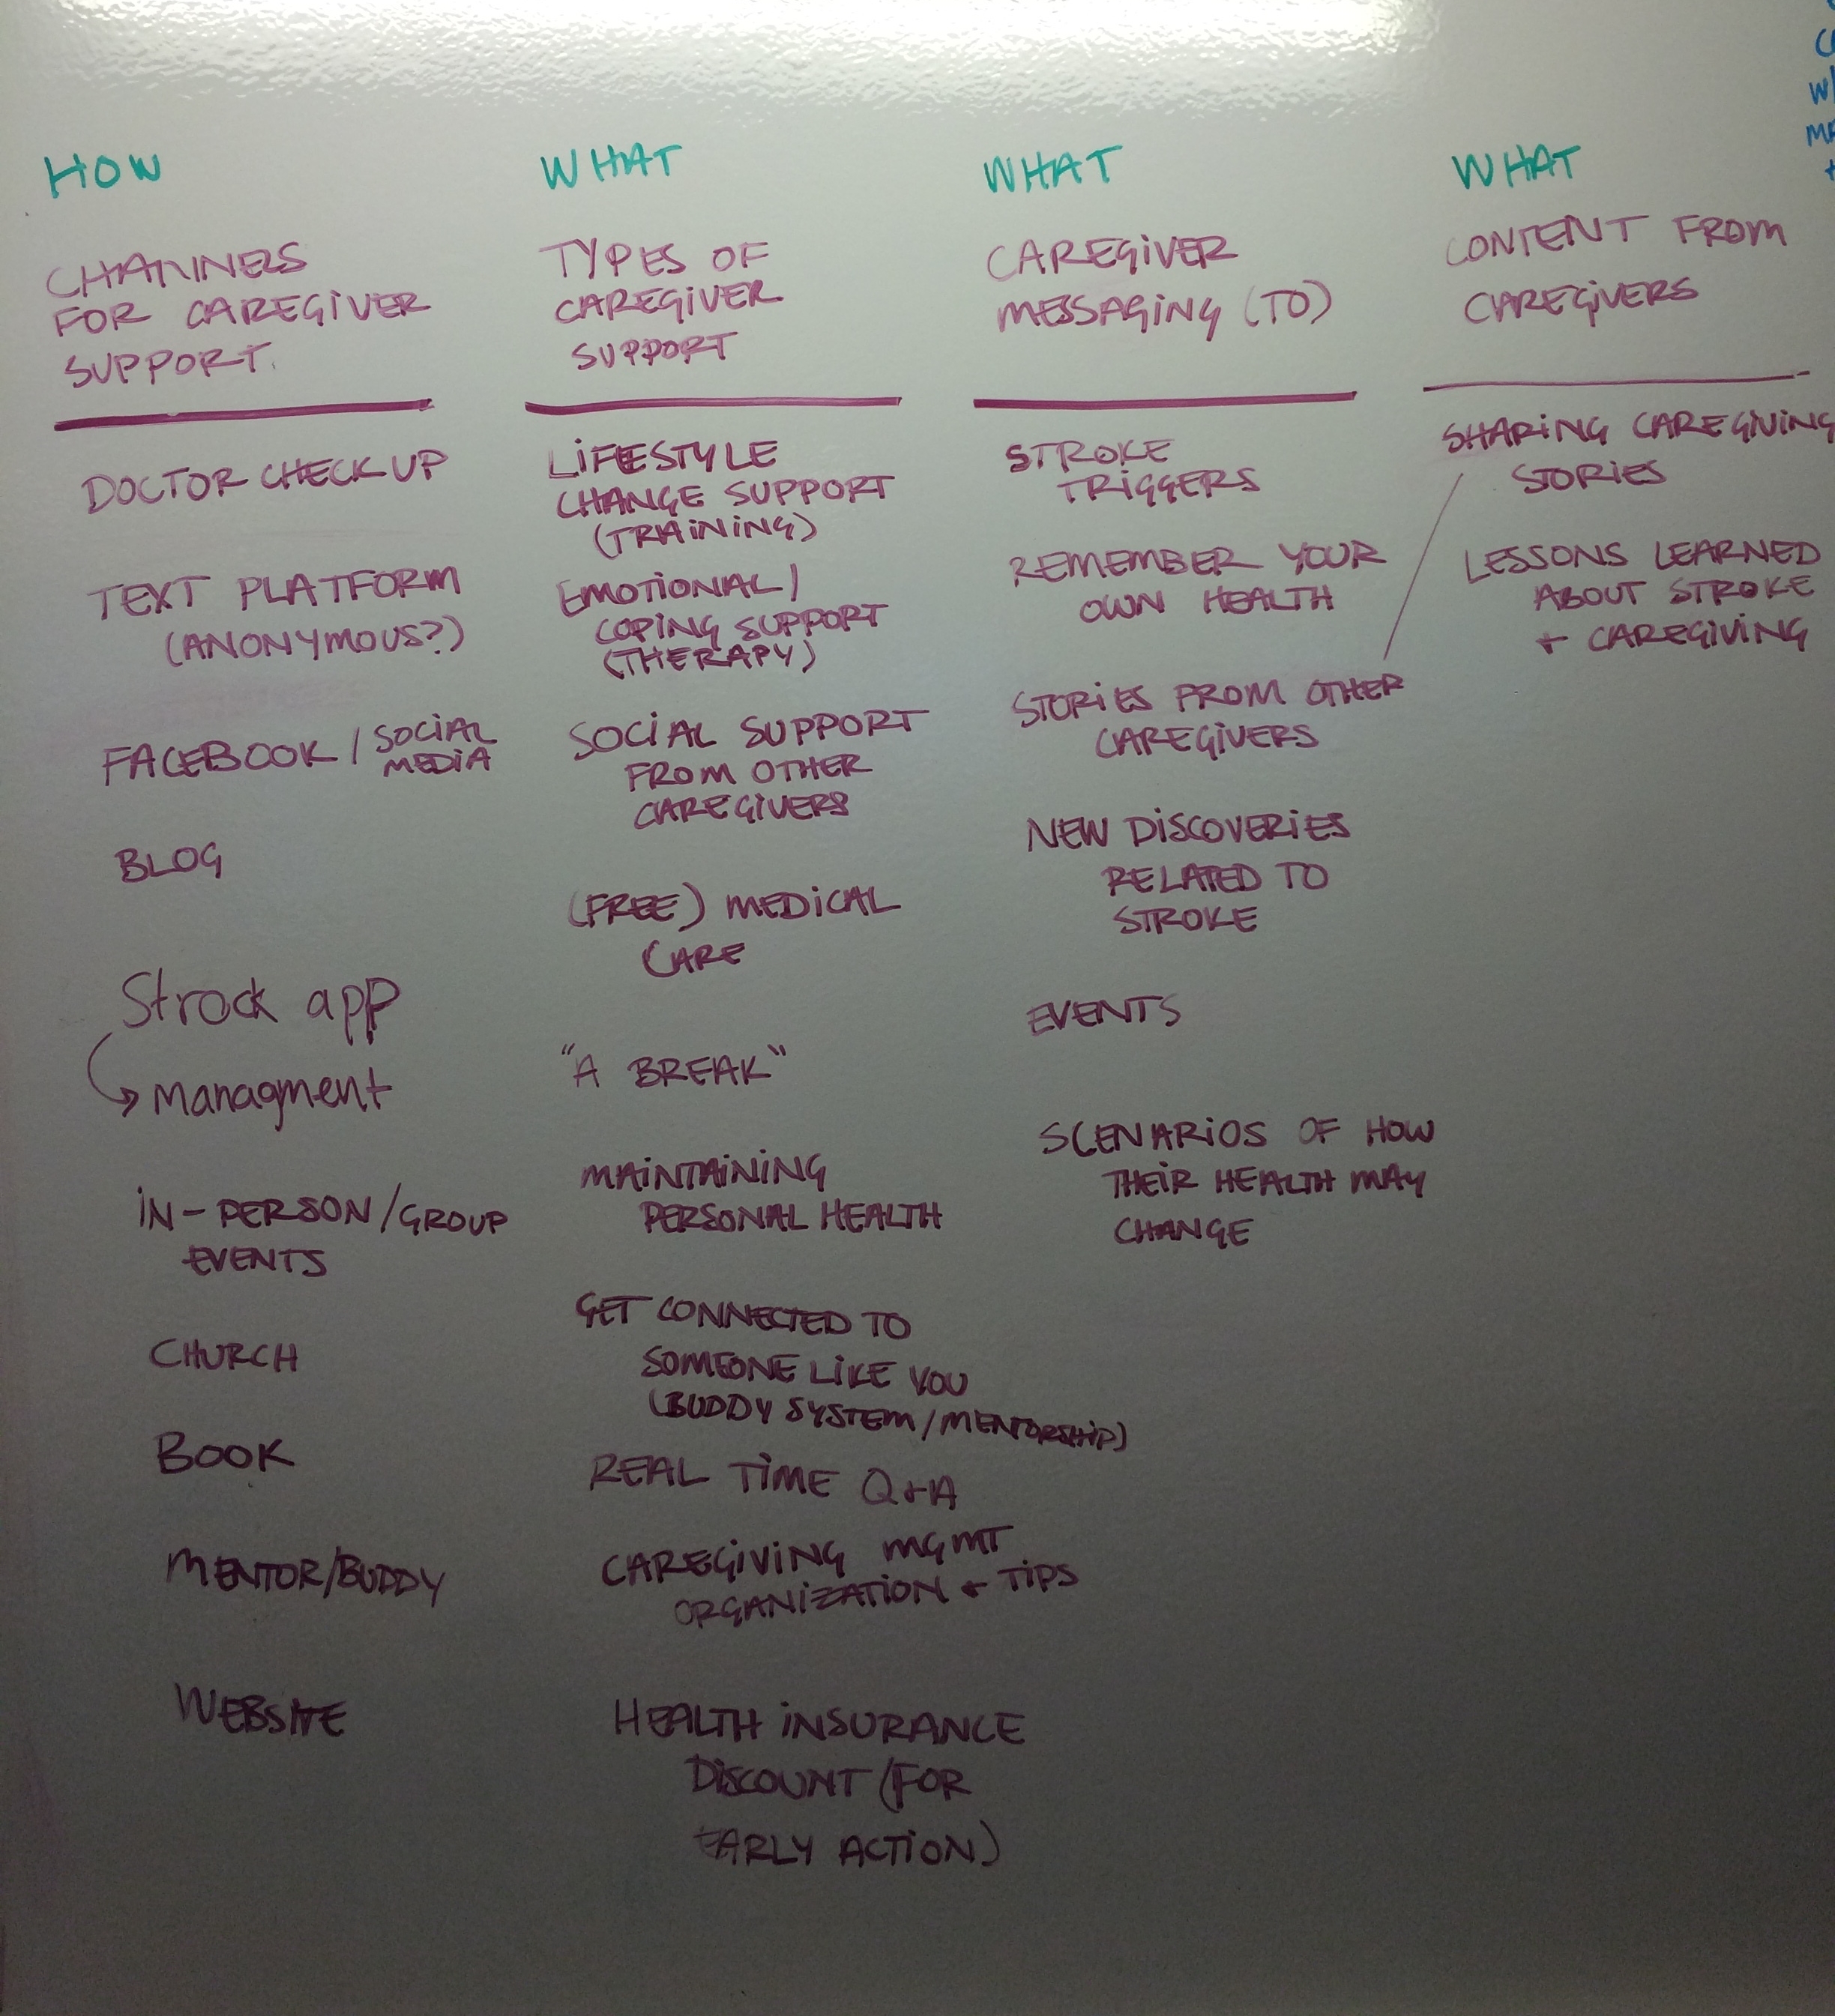 HOW
CHANNELS
FOR CAREGIVER
SUPPORT.
DOCTOR CHECKUP
TEXT PLATFORM
(ANONYMOUS?)
FACEBOOK / SOCIAL
MEDIA
BLOG
Strock app
Managment
IN-PERSON/GROUP
EVENTS
CHURCH
BOOK
MENTOR/BUDDY
WEBSITE
WHAT
TYPES OF
CAREGIVER
SUPPORT
LIFESTYLE
CHANGE SUPPORT
(TRAINING)
EMOTIONAL/
COPING SUPPORT
(THERAPY)
SOCIAL SUPPORT
FROM OTHER
CAREGIVERS
(FREE) MEDICAL
CARE
"A BREAK"
MAINTAINING
PERSONAL HEALTH
GET CONNECTED TO
SOMEONE LIKE YOU
(BUDDY SYSTEM/MENTORSHIP)
REAL TIME Q+A
CAREGIVING MGMT
ORGANIZATION + TIPS
HEALTH INSURANCE
DISCOUNT (FOR
EARLY ACTION)
WHAT
CAREGIVER
MESSAGING (TO)
STROKE
TRIGGERS
REMEMBER YOUR
OWN HEALTH
STORIES FROM OTHER
CAREGIVERS
NEW DISCOVERIES
RELATED TO
STROKE
EVENTS
SCENARIOS OF HOW
THEIR HEALTH MAY
CHANGE
WHAT
CONTENT FROM
CAREGIVERS
SHARING CAREGIVING
STORIES
LESSONS LEARNED
ABOUT STROKE
+ CAREGIVING
W/